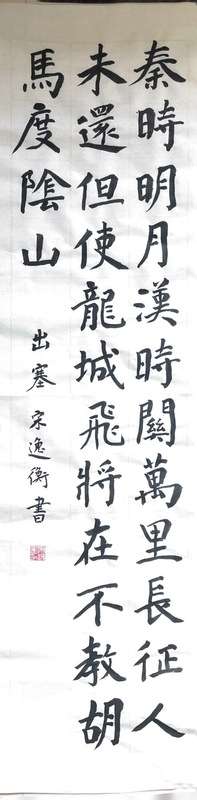 秦時明月漢時關萬里長征人
未還但使龍城飛將在不教胡
馬度陰山
出塞 宋逸衡書